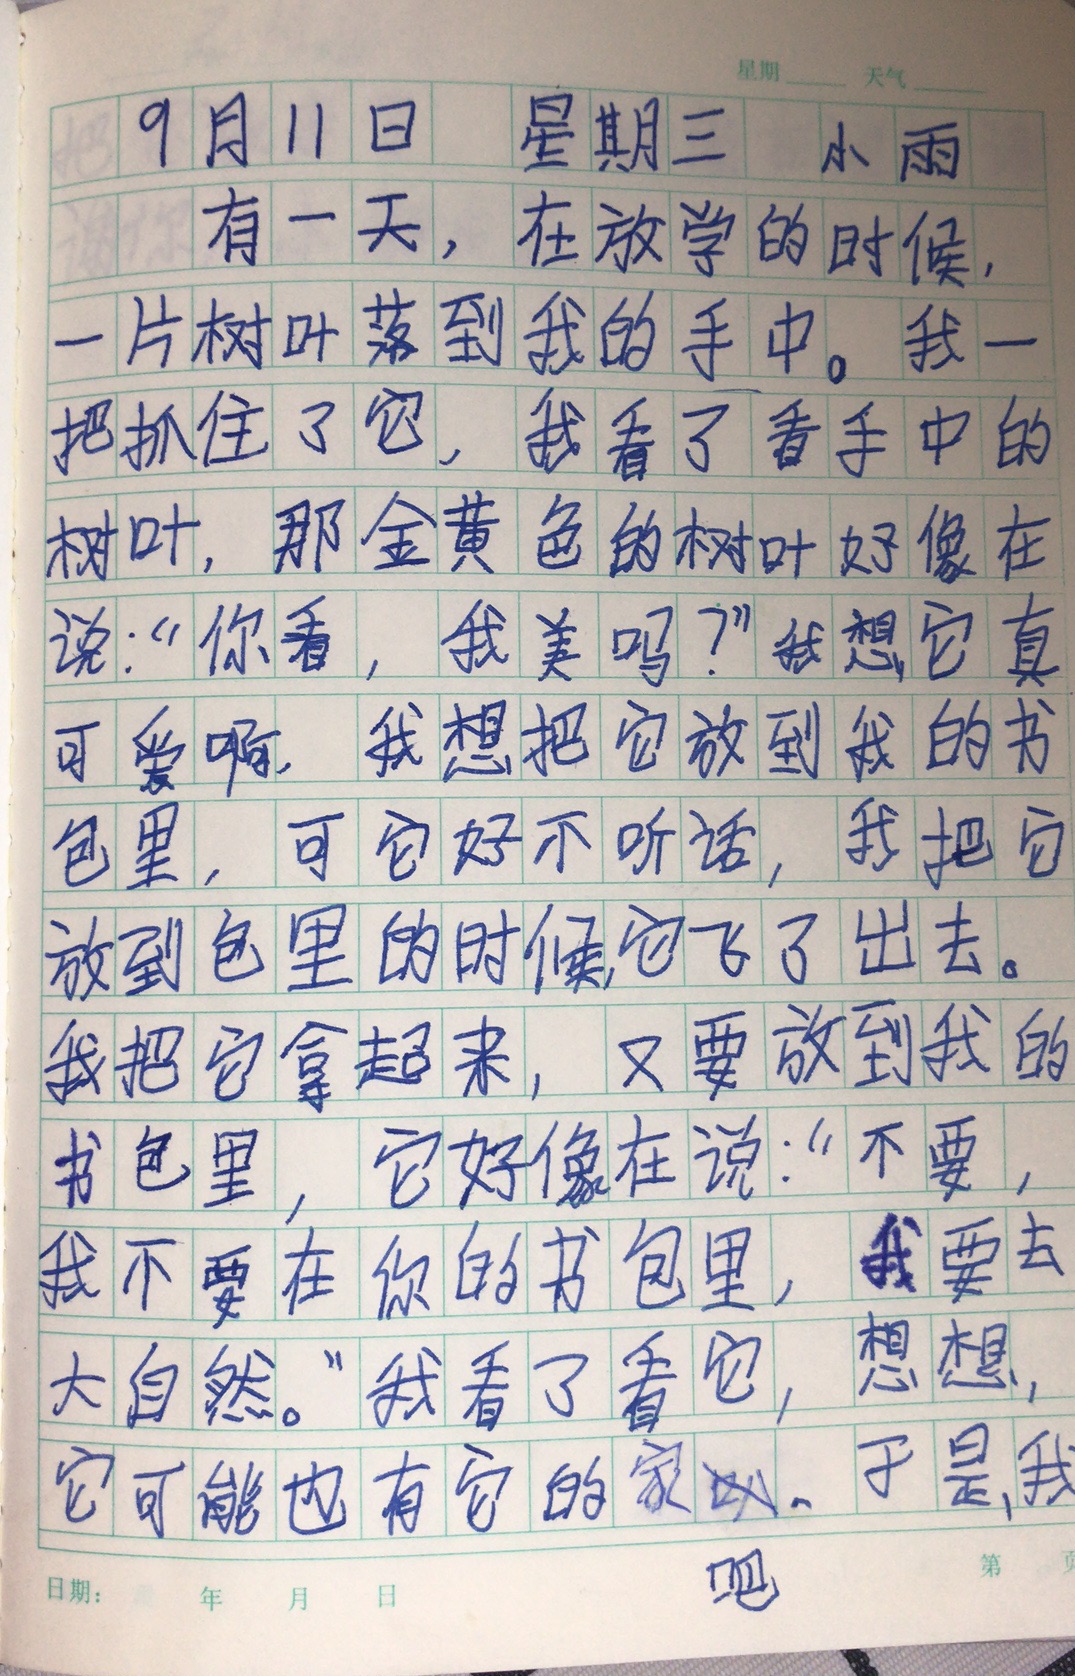 星期 天气
9月11日 星期三 小雨
有一天，在放学的时候，
一片树叶落到我的手中。我一
把抓住了它，我看了看手中的
树叶，那金黄色的树叶好像在
说：“你看，我美吗？”我想，它真
可爱啊，我想把它放到我的书
包里，可它好不听话，我把它
放到包里的时候，它飞了出去。
我把它拿起来，又要放到我的
书包里，它好像在说：“不要，
我不要在你的书包里，我要去
大自然。”我看了看它，想想，
它可能也有它的家吧。于是，我
日期： 年 月 日 第 页